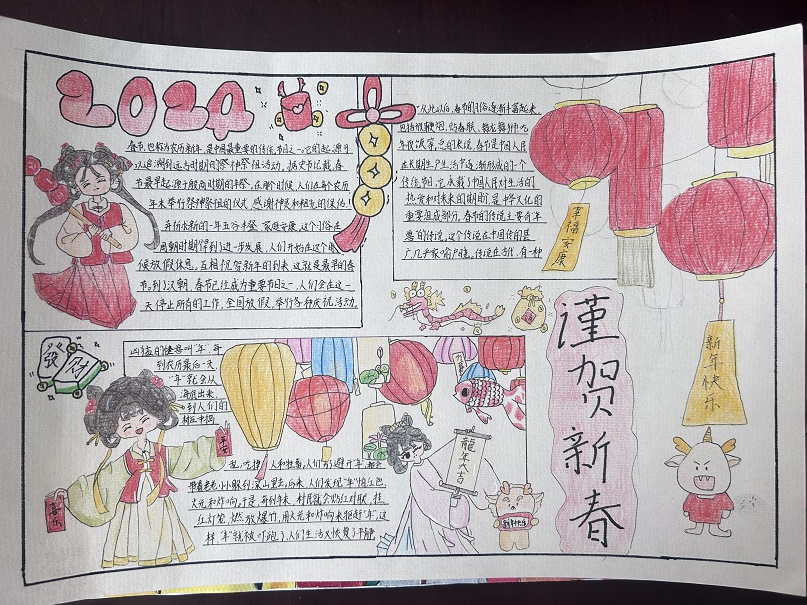 2024
春节,也称为农历新年,是中国最重要的传统节日之一,它的起源可
以追溯到远古时期的祭神祭祖活动,据史节记载,春
节最早起源于殷商时期的年祭,在那个时候,人们在每个农历
年末举行祭神祭祖的仪式,感谢神灵和祖先的保佑!
并祈求新的一年五谷丰登,家庭安康,这个习俗在
周朝时期得到了进一步发展,人们开始在这个时
候放假休息,互相祝贺新年的到来,这就是最早的春
节。到了汉朝,春节已经成为重要节日之一,人们会在这一
天停止所有的工作,全国放假,举行各种庆祝活动。
从此以后,春节的习俗逐渐丰富起来,
包括放鞭炮、贴春联、舞龙舞狮、吃
年夜饭等,总的来说,春节是中国人民
在长期生产生活中逐渐形成的一个
传统节日,它承载了中国人民对生活的
热爱和对未来的期盼,是中华文化的
重要组成部分,春节的传说主要有年
兽的传说,这个传说在中国传的甚
广,几乎家喻户晓,传说在古代,有一种
幸福安康
新年快乐
發财
凶猛的怪兽叫"年",每
到农历最后一天
"年"就会从
海底出来,
到人们的
村庄中捣
乱,吃掉人和牲畜,人们为了避开"年",都会
带着老老小小躲到深山里去,后来,人们发现"年"怕红色、
火光和炸响,于是,每到年末,村民就会贴红对联,挂
红灯笼,燃放爆竹,用火光和炸响来驱赶"年",这
样"年"就被吓跑了,人们生活又恢复了平静
平安
喜乐
龍年大吉
新年快乐
謹贺新春